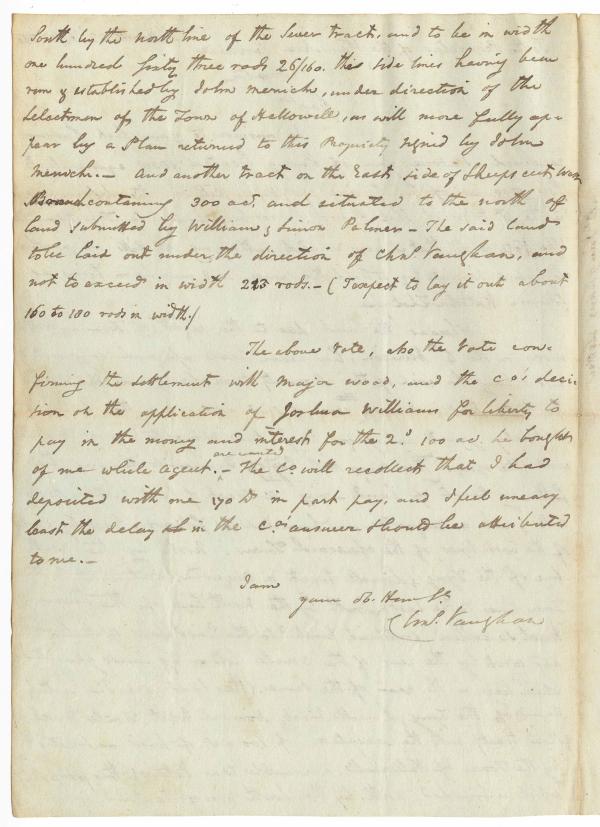 South by the north line of the Sever tract, and to be in width
one hundred sixty three rods 26/160. the side lines having been
run & established by John Merrick, under direction of the
Selectmen of the Town of Hallowell, as will more fully ap-
pear by a Plan returned to this Propriety signed by John
Merrick. — And another tract on the East side of Sheepscut
containing 300 acs. and situated to the north of
land submitted by William & Simon Palmer — The said land
to be laid out under the direction of Chas. Vaughan, and
not to exceed in width 213 rods. — (I expect to lay it out about
160 to 180 rods in width.)
The above vote, also the vote con-
firming the settlement with Major Wood, and the Co's deci-
sion on the application of Joshua Williams for liberty to
pay in the money and interest for the 2d. 100 ac. he bought
of me while agent. are wanted — The Co. will recollect that I had
deposited with one 170 Ds. in part pay, and I feel uneasy
least the delay in the Cos. answer should be attributed
to me. —
I am
your ob. Hum. St.
Chas. Vaughan